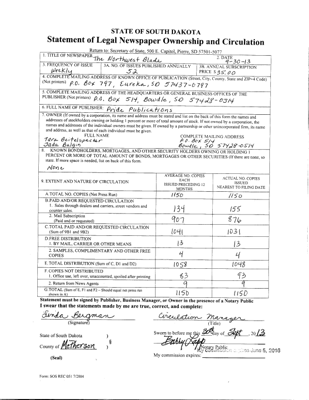 STATE OF SOUTH DAKOTA
Statement of Legal Newspaper Ownership and Circulation
Return to: Secretary of State, 500 E. Capitol, Pierre, SD 57501-5077
1. TITLE OF NEWSPAPER The Northwest Blade 2. DATE 9-30-13
3. FREQUENCY OF ISSUE Weekly 3A. NO. OF ISSUES PUBLISHED ANNUALLY 52 3B. ANNUAL SUBSCRIPTION PRICE $ 35.00
4. COMPLETE MAILING ADDRESS OF KNOWN OFFICE OF PUBLICATION (Street, City, County, State and ZIP+4 Code)
(Not printer) P.O. Box 797, Eureka, SD 57437-0797
5. COMPLETE MAILING ADDRESS OF THE HEADQUARTERS OR GENERAL BUSINESS OFFICES OF THE
PUBLISHER (Not printer) P.O. Box 514, Bowdle, SD 57428-0514
6. FULL NAME OF PUBLISHER Pride Publications
7. OWNER (If owned by a corporation, its name and address must be stated and list on the back of this form the names and
addresses of stockholders owning or holding 1 percent or more of total amount of stock. If not owned by a corporation, the
names and addresses of the individual owners must be given. If owned by a partnership or other unincorporated firm, its name
and address, as well as that of each individual must be given.
FULL NAME COMPLETE MAILING ADDRESS
P.O. Box 514
Bowdle, SD 57428-0514
8. KNOWN BONDHOLDERS, MORTGAGES, AND OTHER SECURITY HOLDERS OWNING OR HOLDING 1
PERCENT OR MORE OF TOTAL AMOUNT OF BONDS, MORTGAGES OR OTHER SECURITIES (If none, so
state. If more space is needed, list on back of this form.
None
9. EXTENT AND NATURE OF CIRCULATION AVERAGE NO. COPIES EACH ISSUED PRECEDING 12 MONTHS ACTUAL NO. COPIES ISSUED NEAREST TO FILING DATE
A. TOTAL NO. COPIES (Net Press Run) 1150 1150
B. PAID AND/OR REQUESTED CIRCULATION
1. Sales through dealers and carriers, street vendors and counter sales 134 155
2. Mail Subscription (Paid and or requested) 907 876
C. TOTAL PAID AND/OR REQUESTED CIRCULATION (Sum of 9B1 and 9B2) 1041 1031
D. FREE DISTRIBUTION
1. BY MAIL, CARRIER OR OTHER MEANS 13 13
2. SAMPLES, COMPLIMENTARY AND OTHER FREE COPIES 4 4
E. TOTAL DISTRIBUTION (Sum of C, D1 and D2) 1058 1048
F. COPIES NOT DISTRIBUTED
1. Office use, left over, unaccounted, spoiled after printing 83 93
2. Return from News Agents 9 9
G. TOTAL (Sum of E, F1 and F2 - Should equal net press run shown in A) 1150 1150
Statement must be signed by Publisher, Business Manager, or Owner in the presence of a Notary Public
I swear that the statements made by me are true, correct, and complete:
Linda Bergman Circulation Manager
(Signature) (Title)
State of South Dakota )
County of McPherson ) §
Sworn to before me this 30th day of Sept, 2013
Notary Public
(Seal) My commission expires: June 5, 2018
Form: SOS REC 051 7/2004